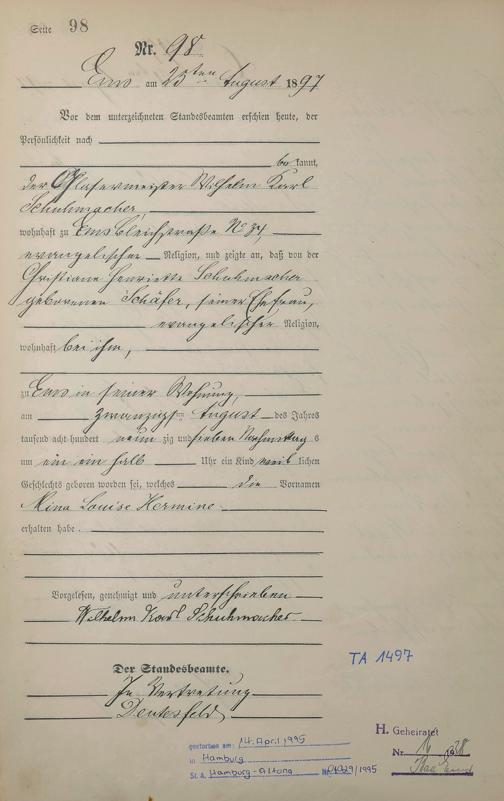 Seite 98
Nr. 98
Ems am 23ten August 1897
Vor dem unterzeichneten Standesbeamten erschien heute, der
Persönlichkeit nach
bekannt,
der Glasermeister Wilhelm Karl
Schuhmacher,
wohnhaft zu Ems Bleichstraße No 34,
evangelischer Religion, und zeigte an, daß von der
Christiane Henriette Schuhmacher
geborenen Schäfer, seiner Ehefrau,
evangelischer Religion,
wohnhaft bei ihm,
zu Ems in seiner Wohnung,
am zwanzigsten August des Jahres
tausend acht hundert neunzig und sieben Nachmittags
um ein ein halb Uhr ein Kind weiblichen
Geschlechts geboren worden sei, welches die Vornamen
Mina Louise Hermine
erhalten habe.
Vorgelesen, genehmigt und unterschrieben
Wilhelm Karl Schuhmacher
TA 1497
Der Standesbeamte.
In Vertretung
H. Geheiratet
Nr.
gestorben am: 14. April 1995
in Hamburg
St. A. Hamburg-Altona Nr. /1995